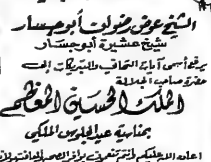 الشيخ عوض رضوان أبو جسار
شيخ عشيرة أبو جسار
يرفع أسمى آيات التهاني والتبريكات إلى
حضرة صاحب الجلالة
الملك الحسين المعظم
بمناسبة عيد الجلوس الملكي